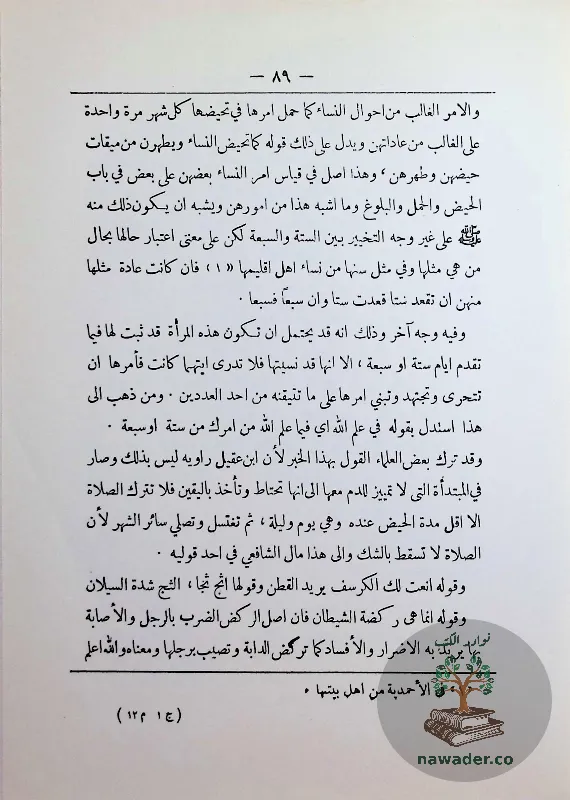 — ٨٩ —
والامر الغالب من احوال النساء كما حمل امرها في تحيضها كل شهر مرة واحدة
على الغالب من عاداتهن ويدل على ذلك قوله كما تحيض النساء ويطهرن من ميقات
حيضهن وطهرهن ، وهذا اصل في قياس امر النساء بعضهن على بعض في باب
الحيض والحمل والبلوغ وما اشبه هذا من امورهن ويشبه ان يكون ذلك منه
ﷺ على غير وجه التخيير بين الستة والسبعة لكن على معنى اعتبار حالها بحال
من هي مثلها وفي مثل سنها من نساء اهل اقليمها «١» فان كانت عادة مثلها
منهن ان تقعد ستا قعدت ستا وان سبعاً فسبعا .
وفيه وجه آخر وذلك انه قد يحتمل ان تكون هذه المرأة قد ثبت لها فيما
تقدم ايام ستة او سبعة ، الا انها قد نسيتها فلا تدرى ايتهما كانت فأمرها ان
تتحرى وتجتهد وتبني امرها على ما تتيقنه من احد العددين . ومن ذهب الى
هذا استدل بقوله في علم الله اي فيما علم الله من امرك من ستة اوسبعة .
وقد ترك بعض العلماء القول بهذا الخبر لأن ابن عقيل راويه ليس بذلك وصار
في المبتدأة التى لا تمييز للدم معها الى انها تحتاط وتأخذ باليقين فلا تترك الصلاة
الا اقل مدة الحيض عنده وهي يوم وليلة ، ثم تغتسل وتصلي سائر الشهر لأن
الصلاة لا تسقط بالشك والى هذا مال الشافعي في احد قوليه .
وقوله انعت لك الكرسف يريد القطن وقولها اثج ثجا ، الثج شدة السيلان
وقوله انما هى ركضة الشيطان فان اصل الركض الضرب بالرجل والأصابة
بها يريد به الاضرار والأفساد كما تركض الدابة وتصيب برجلها ومعناه والله اعلم
الأحمدية من اهل بيتها .
(ج ١ م ١٢)
نوادر الكتب
nawader.co